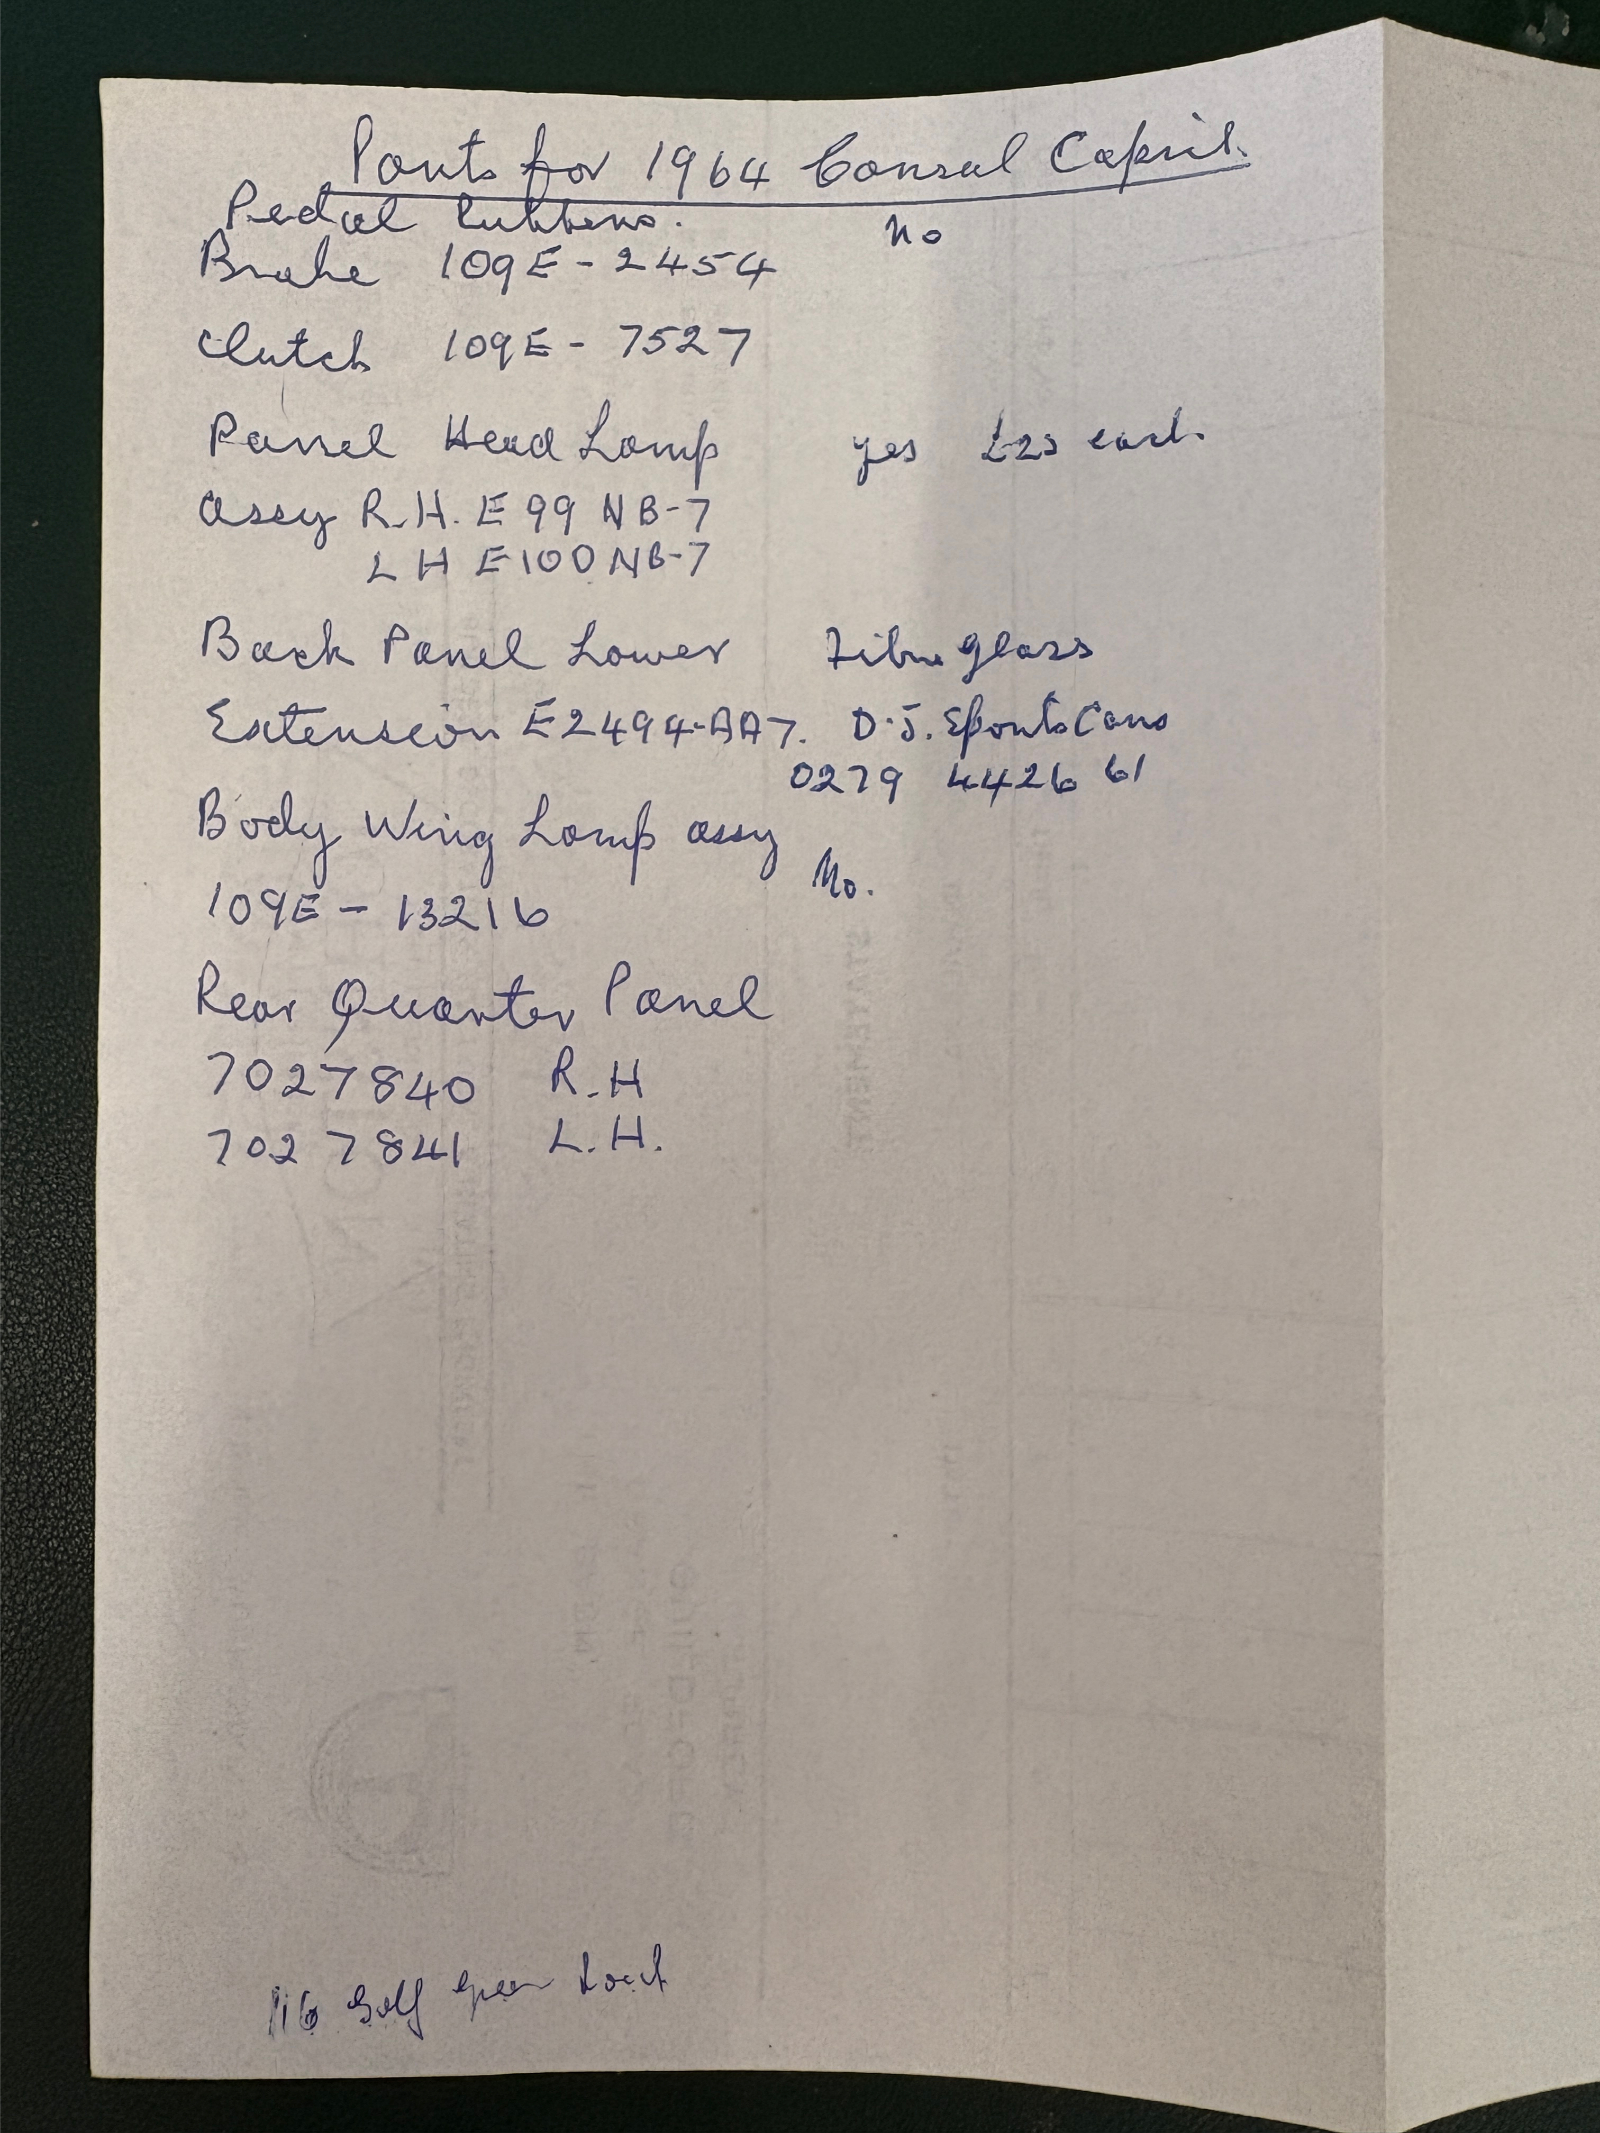 Parts for 1964 Consul Capri.
Pedal Rubbers. No
Brake 109E - 2454
Clutch 109E - 7527
Panel Head Lamp yes £25 each.
assy R.H. E99 NB-7
LH E100NB-7
Back Panel Lower Fibre glass
Extension E2494-AA7. D.J. Sports Cars
0279 4426 61
Body Wing Lamp assy
No.
109E - 13216
Rear Quarter Panel
7027840 R.H
7027841 L.H.
116 Golf Green Road
STATEMENT